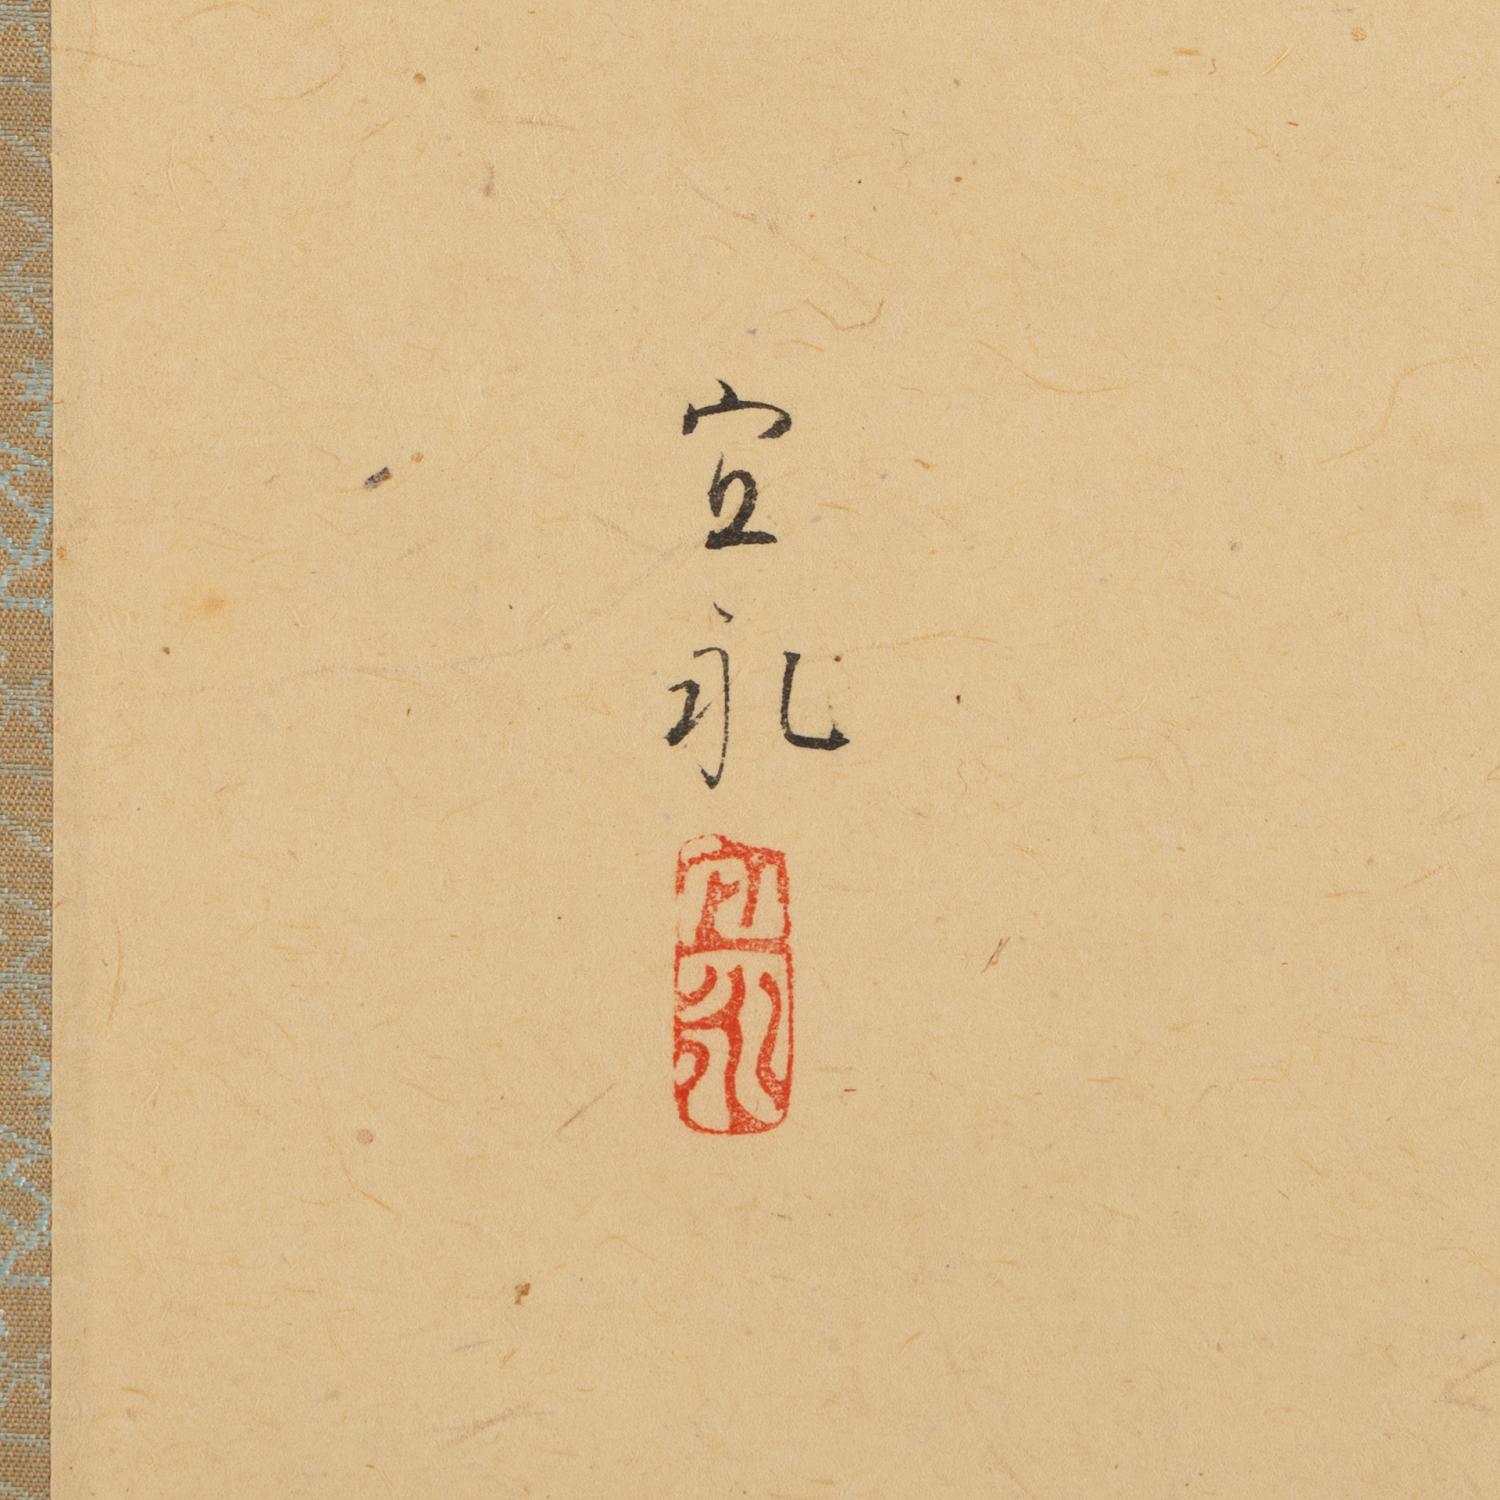 宜
永
宜
永